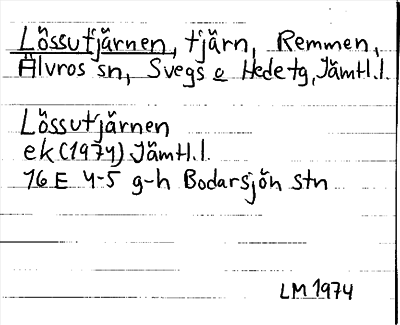 Lössutjärnen, tjärn, Remmen,
Älvros sn, Svegs o Hede tg, Jämtl.l.
Lössutjärnen
ek (1974) Jämtl.l.
16 E 4-5 g-h Bodarsjön stn
LM 1974